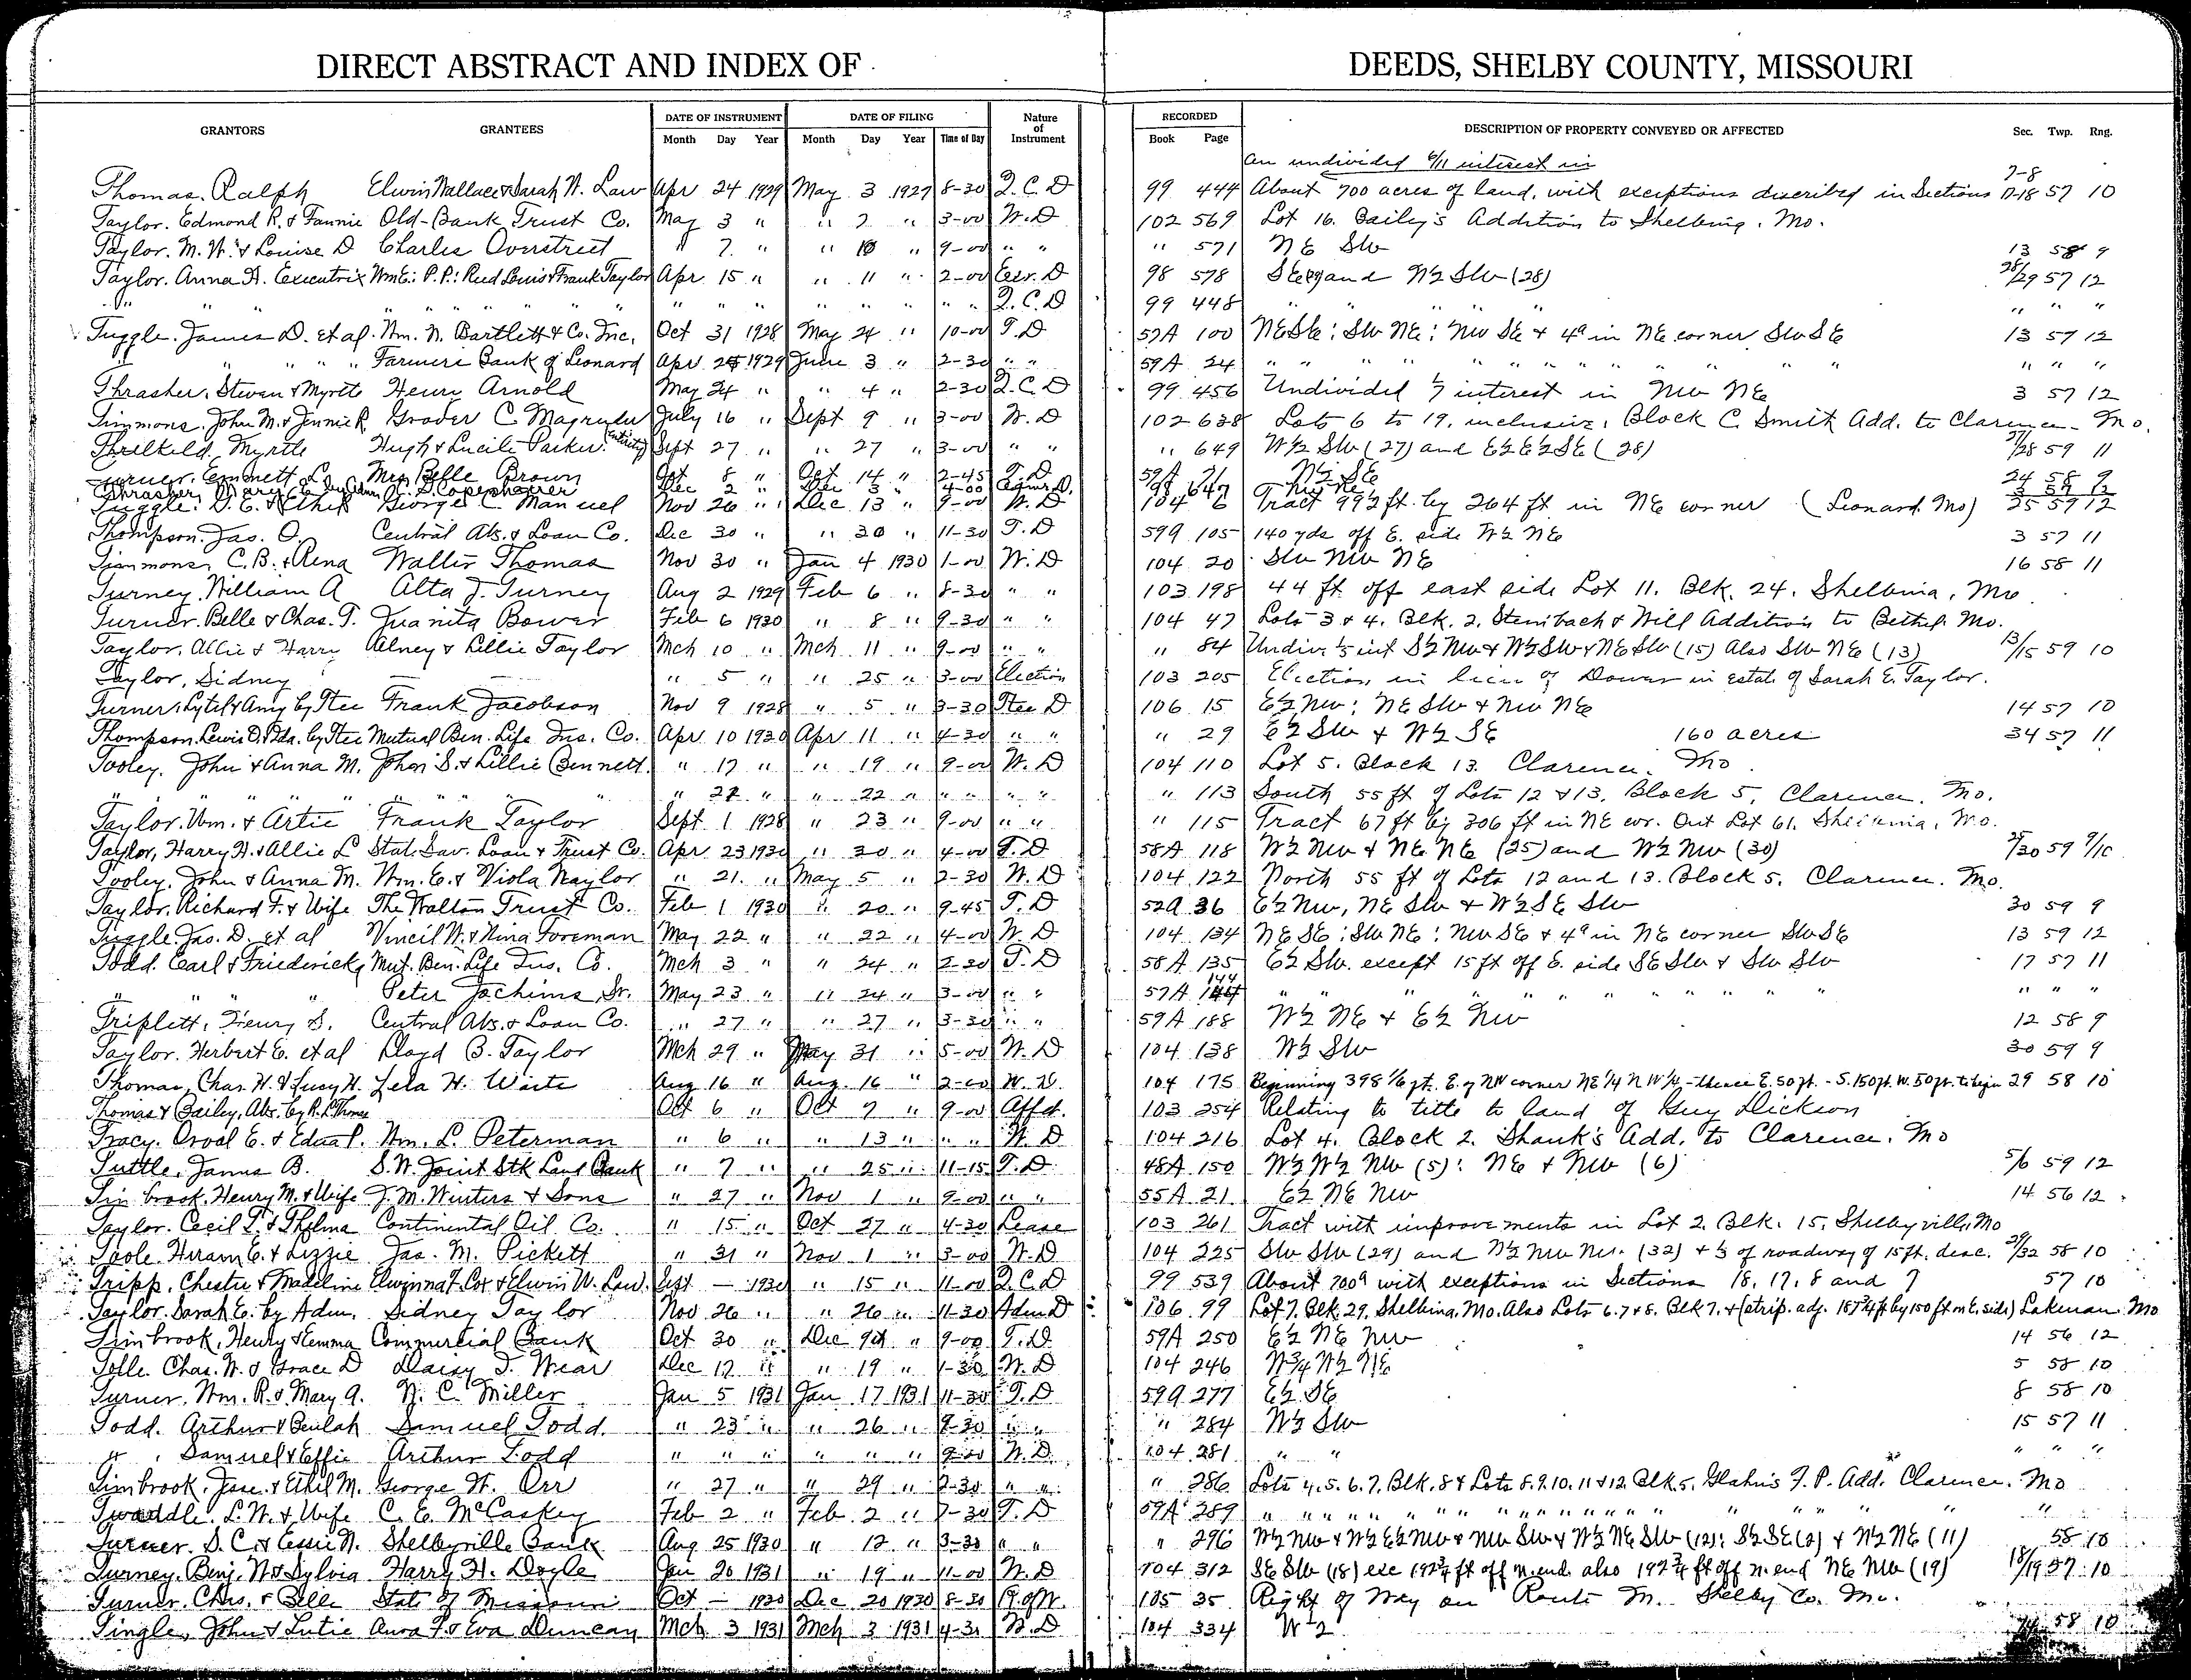 DIRECT ABSTRACT AND INDEX OF DEEDS, SHELBY COUNTY, MISSOURI
GRANTORS GRANTEES DATE OF INSTRUMENT DATE OF FILING Nature of Instrument RECORDED DESCRIPTION OF PROPERTY CONVEYED OR AFFECTED Sec. Twp. Rng.
Month Day Year Month Day Year Time of Day Book Page
An undivided 6/11 interest in
Thomas. Ralph Elwin Wallace & Sarah W. Law Apr 24 1929 May 3 1929 8-30 Q.C.D 99 444 About 700 acres of land, with exceptions discribed in Sections 7-8 17-18 57 10
Taylor. Edmond R. & Fannie Old-Bank Trust Co. May 3 " " 7 " 3-00 W.D 102 569 Lot 16. Baily's Addition to Shelbina, Mo.
Taylor. M. W. & Louise D Charles Overstreet " 7. " " 10 " 9-00 " " " 571 NE SW 13 58 9
Taylor. Anna H. Executrix Wm E: P.P: Reed Louis & Frank Taylor Apr 15 " " 11 " 2-00 Exr. D 98 578 and N2 SW (28) 28/29 57 12
" " " " " " " " " " " " Q.C.D 99 448 " " " " " " "
Tuggle. James D. et al. Wm. N. Bartlett & Co. Inc. Oct 31 1928 May 24 " 10-00 T.D 57A 100 NE SE: SW NE: NW SE & 4a in NE corner SW SE 13 57 12
" " " " Farmers Bank of Leonard Apr 25 1929 June 3 " 2-30 " " 59A 24 " " " " " " " " " " "
Thrasher, Stevan & Myrtle Henry Arnold May 24 " " 4 " 2-30 Q.C.D 99 456 Undivided 1/7 interest in NW NE 3 57 12
Timmons. John M. & Jennie R. Grover C. Magruder July 16 " Sept 9 " 3-00 W.D 102 638 Lots 6 to 19. inclusive, Block C. Smith Add. to Clarence. Mo.
Threlkeld. Myrtle Hugh & Lucile Parker (entirety) Sept 27 " " 27 " 3-00 " " " 649 W2 SW (27) and E2 E2 SE (28) 27/28 59 11
Turner. Emmett L. Mrs Belle Brown Oct 8 " Oct 14 " 2-45 T.D 59A 71 N2 SE 24 58 9
Thrasher, Mary E. C. D. Copenhaver Dec 2 " Dec 3 " 4-00 98 647 NW NE 3 57 12
Tuggle. D. E. & Ethel George C. Manuel Nov 26 " Dec 13 " 9-00 W.D 104 6 Tract 99 1/2 ft. by 264 ft in NE corner (Leonard Mo) 25 57 12
Thompson. Jas. O. Central Abs. & Loan Co. Dec 30 " " 30 " 11-30 T.D 59A 105 140 yds off E. side W2 NE 3 57 11
Timmons, C. B. & Rena Walter Thomas Nov 30 " Jan 4 1930 1-00 W.D 104 20 SW NW NE 16 58 11
Turney. William A Alta J. Turney Aug 2 1929 Feb 6 " 8-30 " " 103 198 44 ft off east side Lot 11. Blk. 24. Shelbina, Mo
Turner. Belle & Chas. T. Juanita Bower Feb 6 1930 " 8 " 9-30 " " 104 47 Lots 3 & 4. Blk. 2. Steinbach & Will Addition to Bethel. Mo.
Taylor. Allie & Harry Alney & Lillie Taylor Mch 10 " Mch 11 " 9-00 " " " 84 Undiv 1/5 int S2 NW & W2 SW & NE SW (15) Also SW NE (13) 13/15 59 10
Taylor, Sidney — — " 5 " " 25 " 3-00 Election 103 205 Election in lieu of Dower in estate of Sarah E. Taylor.
Turner, Lytel & Amy by Tree Frank Jacobson Nov 9 1928 " 5 " 3-30 Tree D 106 15 E2 NW: NE SW & NW NE 14 57 10
Thompson. Lewis D. & Ida. by Tree Mutual Ben. Life Ins. Co. Apr 10 1930 Apr 11 " 4-30 " " " 29 E2 SW & W2 SE 160 acres 34 57 11
Tooley. John & Anna M. John S. & Lillie Bennett. " 17 " " 19 " 9-00 W.D 104 110 Lot 5. Block 13. Clarence. Mo.
" " " " " " " " 22 " " 22 " " " " " " 113 South 55 ft of Lots 12 & 13. Block 5, Clarence. Mo.
Taylor. Wm. & Artie Frank Taylor Sept 1 1928 " 23 " 9-00 " " " 115 Tract 67 ft by 306 ft in NE cor. Out Lot 61. Shelbina, Mo.
Taylor, Harry H. & Allie L State Sav. Loan & Trust Co. Apr 23 1930 " 30 " 4-00 T.D 58A 118 W2 NW & NE NE (25) and W2 NW (30) 25/30 59 9/10
Tooley. John & Anna M. Wm. E. & Viola Naylor " 21. " May 5 " 2-30 W.D 104 122 North 55 ft of Lots 12 and 13. Block 5. Clarence. Mo.
Taylor. Richard F. & Wife The Walton Trust Co. Feb 1 1930 " 20 " 9-45 T.D 52A 36 E2 NW, NE SW & W2 SE SW 30 59 9
Tuggle. Jas. D. et al Vincil W. & Nina Foreman May 22 " " 22 " 4-00 W.D 104 134 NE SE: SW NE: NW SE & 4a in NE corner SW SE 13 59 12
Todd. Earl & Friedericke Mut. Ben. Life Ins. Co. Mch 3 " " 24 " 2-30 T.D 58A 135 E2 SW. except 15 ft off E. side SE SW & SW SW 17 57 11
" " " Peter Jochims, Sr. May 23 " " 24 " 3-00 " " 57A 144 " " " " " " " " " " " " "
Triplett, Henry S. Central Abs. & Loan Co. " 27 " " 27 " 3-30 " " 59A 188 W2 NE & E2 NW 12 58 9
Taylor. Herbert E. et al Lloyd B. Taylor Mch 29 " May 31 " 5-00 W.D 104 138 W2 SW 30 59 9
Thomas, Chas. W. & Lucy H. Lela H. Waite Aug 16 " Aug. 16 " 2-00 W.D. 104 175 Beginning 398 1/6 ft. E. of NW corner NE 1/4 NW 1/4 - thence E. 50 ft. - S. 150 ft. W. 50 ft. to begin 29 58 10
Thomas & Bailey, Abs. by R. L. Thomas Oct 6 " Oct 7 " 9-00 Affd. 103 254 Relating to title to land of Guy Dickson
Tracy. Orval E. & Edna P. Wm. L. Peterman " 6 " " 13 " " " W.D 104 216 Lot 4. Block 2. Shank's Add. to Clarence. Mo
Tuttle, James B. S.W. Joint Stk Land Bank " 7 " " 25 " 11-15 T.D. 48A 150 W2 W2 NW (5): NE & NW (6) 5/6 59 12
Timbrook. Henry M. & Wife J. M. Winters & Sons " 27 " Nov 1 " 9-00 " " 55A 21 E2 NE NW 14 56 12
Taylor. Cecil T. & Thelma Continental Oil Co. " 15 " Oct 27 " 4-30 Lease 103 261 Tract with improvements in Lot 2. Blk. 15. Shelbyville, Mo
Toole. Hiram E. & Lizzie Jas. M. Pickett " 31 " Nov 1 " 3-00 W.D 104 225 SW SW (29) and N2 NW NW. (32) & 1/3 of roadway of 15 ft. desc. 29/32 58 10
Tripp, Chester & Madeline Elwinna F. Cox & Elwin W. Law. Sept — 1930 " 15 " 11-00 Q.C.D 99 539 About 700a with exceptions in Sections 18, 17, 8 and 7 57 10
Taylor. Sarah E. by Adm. Sidney Taylor Nov 26 " " 26 " 11-30 Adm D 106 99 Lot 7. Blk. 29. Shelbina, Mo. Also Lots 6. 7 & 8. Blk 7. & (strip. adj. 187 3/4 ft by 150 ft on E. side) Lakenan. Mo
Timbrook, Henry & Emma Commercial Bank Oct 30 " Dec 9 " 9-00 T.D. 59A 250 E2 NE NW 14 56 12
Tolle. Chas. W. & Grace D Daisy T. Wear Dec 17 " " 19 " 1-30 W.D 104 246 N3/4 W2 NE 5 58 10
Turner. Wm. R. & Mary A. N. C. Miller Jan 5 1931 Jan 17 1931 11-30 T.D 59A 277 E2 SE 8 58 10
Todd. Arthur & Beulah Samuel Todd. " 23 " " 26 " 9-30 " " " 284 W2 SW 15 57 11
" Samuel & Effie Arthur Todd " " " " " " 9-00 W.D. 104 281 " " " " "
Timbrook. Jesse. & Ethel M. George W. Orr " 27 " " 29 " 2-30 " " " 286 Lots 4. 5. 6. 7. Blk. 8 & Lots 8. 9. 10. 11 & 12. Blk. 5. Glahn's F. P. Add. Clarence. Mo
Twaddle. L. W. & Wife C. E. McCaskey Feb 2 " Feb. 2 " 7-30 T.D 59A 289 " " " " " " " " " " " " " " " " "
Turner. S. C. & Essie N. Shelbyville Bank Aug 25 1930 " 12 " 3-30 " " " 296 W2 NW & W2 E2 NW & NW SW & W2 NE SW (12): S2 SE (2) & W2 NE (11) 58 10
Turney. Benj. N. & Sylvia Harry H. Doyle Jan 20 1931 " 19 " 11-00 W.D 104 312 SE SW (18) exc 192 3/4 ft off n. end. also 192 3/4 ft off n. end NE NW (19) 18/19 57 10
Turner. Chas. & Belle State of Missouri Oct — 1930 Dec 20 1930 8-30 R. of W. 105 35 Right of Way on Route M. Shelby Co. Mo.
Tingle, John & Lutie Aura F. & Eva Duncan Mch 3 1931 Mch 3 1931 4-30 W.D 104 334 W2 58 10